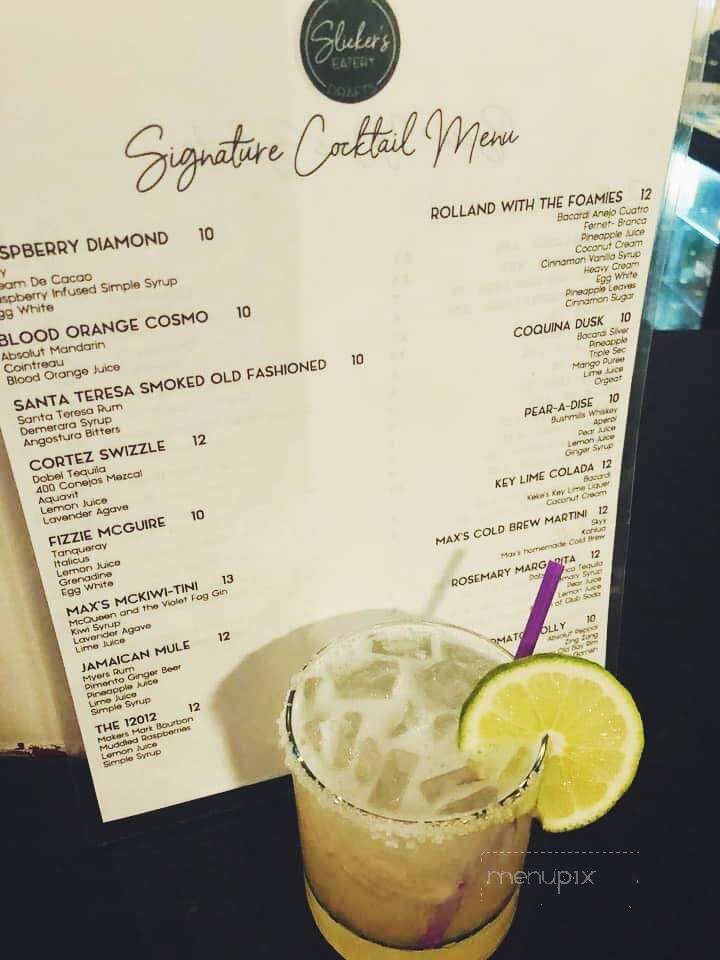 Slicker's
EATERY
DRAFTS
Signature Cocktail Menu
SPBERRY DIAMOND 10
y
eam De Cacao
aspberry Infused Simple Syrup
gg White
BLOOD ORANGE COSMO 10
Absolut Mandarin
Cointreau
Blood Orange Juice
SANTA TERESA SMOKED OLD FASHIONED 10
Santa Teresa Rum
Demerara Syrup
Angostura Bitters
CORTEZ SWIZZLE 12
Dobel Tequila
400 Conejos Mezcal
Aquavit
Lemon Juice
Lavender Agave
FIZZIE MCGUIRE 10
Tanqueray
Italicus
Lemon Juice
Grenadine
Egg White
MAX'S MCKIWI-TINI 13
McQueen and the Violet Fog Gin
Kiwi Syrup
Lavender Agave
Lime Juice
JAMAICAN MULE 12
Myers Rum
Pimento Ginger Beer
Pineapple Juice
Lime Juice
Simple Syrup
THE 12012 12
Makers Mark Bourbon
Muddled Raspberries
Lemon Juice
Simple Syrup
ROLLAND WITH THE FOAMIES 12
Bacardi Anejo Cuatro
Fernet- Branca
Pineapple Juice
Coconut Cream
Cinnamon Vanilla Syrup
Heavy Cream
Egg White
Pineapple Leaves
Cinnamon Sugar
COQUINA DUSK 10
Bacardi Silver
Pineapple
Triple Sec
Mango Puree
Lime Juice
Orgeat
PEAR-A-DISE 10
Bushmills Whiskey
Aperol
Pear Juice
Lemon Juice
Ginger Syrup
KEY LIME COLADA 12
Bacardi
Keke's Key Lime Liquer
Coconut Cream
MAX'S COLD BREW MARTINI 12
Skyy
Kahlua
Max's homemade Cold Brew
ROSEMARY MARGARITA 12
Tequila
Syrup
Pear Juice
Lemon Juice
of Club Soda
OLLY 10
Absolut Peppar
Zing Zang
Old Bay Rim
Garnish
menupix